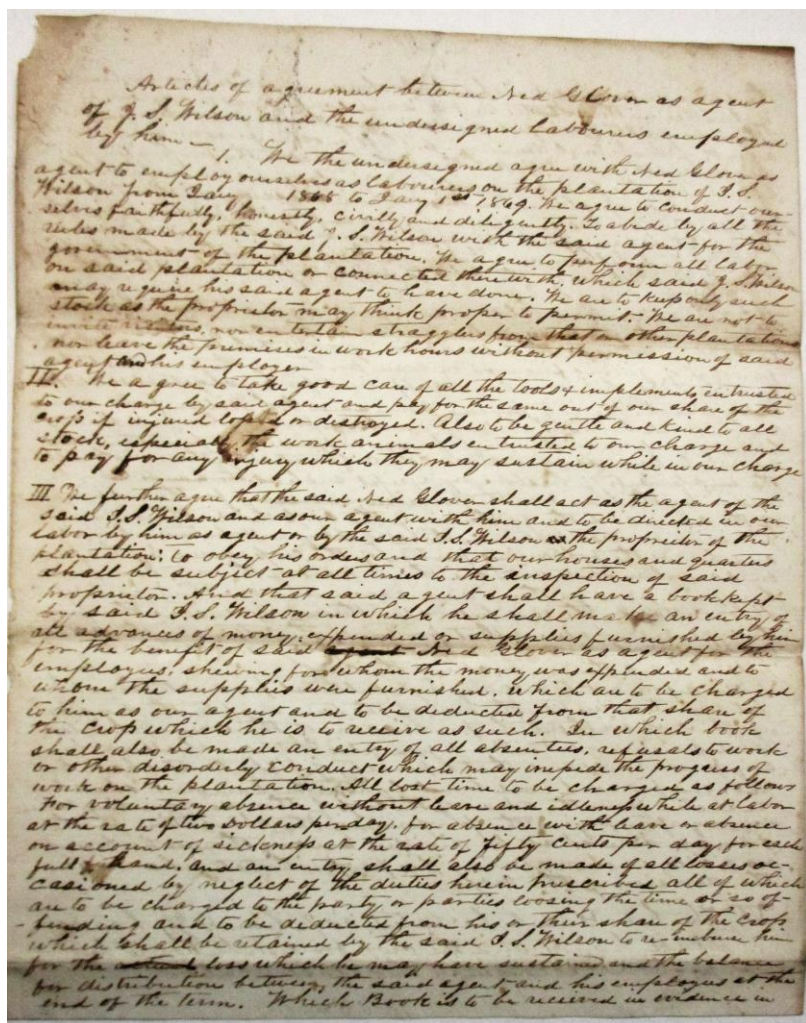 Articles of agreement between Ned Glover as agent
of J. S. Wilson and the undersigned labourers employed
by him —
1. We the undersigned agree with Ned Glover as
agent to employ ourselves as labourers on the plantation of J. S.
Wilson from Jany 1868 to Jany 1st 1869. We agree to conduct our-
selves faithfully, honestly, civilly and diligently. To abide by all the
rules made by the said J. S. Wilson with the said agent for the
government of the plantation. We agree to perform all labor
on said plantation or connected therewith, which said J. S. Wilson
may require his said agent to have done. We are to keep only such
stock as the proprietor may think proper to permit. We are not to
invite visitors, nor entertain stragglers from that or other plantations
nor leave the premises in work hours without permission of said
agent and his employer
II. We agree to take good care of all the tools & implements entrusted
to our charge by said agent and pay for the same out of our share of the
crop if injured or distroyed. Also to be gentle and kind to all
stock, especialy the work animals entrusted to our charge and
to pay for any injury which they may sustain while in our charge
III We further agree that the said Ned Glover shall act as the agent of the
said J. S. Wilson and as our agent with him and to be directed in our
labor by him as agent or by the said J. S. Wilson the proprietor of the
plantation; to obey his orders and that our houses and quarters
shall be subject at all times to the inspection of said
proprietor. And that said agent shall have a book kept
by said J. S. Wilson in which he shall make an entry of
all advances of money, expended or supplies furnished by him
for the benefit of said agent Ned Glover as agent for the
employees, shewing for whom the money was expended and to
whom the supplies were furnished, which are to be charged
to him as our agent and to be deducted from that share of
the crop which he is to receive as such. In which book
shall also be made an entry of all absentees, refusals to work
or other disorderly conduct which may impede the progress of
work on the plantation. All lost time to be charged as follows
For voluntary absence without leave and idleness while at labor
at the rate of two Dollars per day, for absence with leave or absence
on account of sickness at the rate of fifty cents per day for each
full hand, and an entry shall also be made of all losses oc-
casioned by neglect of the duties herein prescribed all of which
are to be charged to the party or parties loosing the time or so of-
fending and to be deducted from his or their share of the crop
which shall be retained by the said J. S. Wilson to re-imburse him
for the loss which he may have sustained and the balance
for distribution between, the said agent and his employees at the
end of the term. Which Book is to be received in evidence in